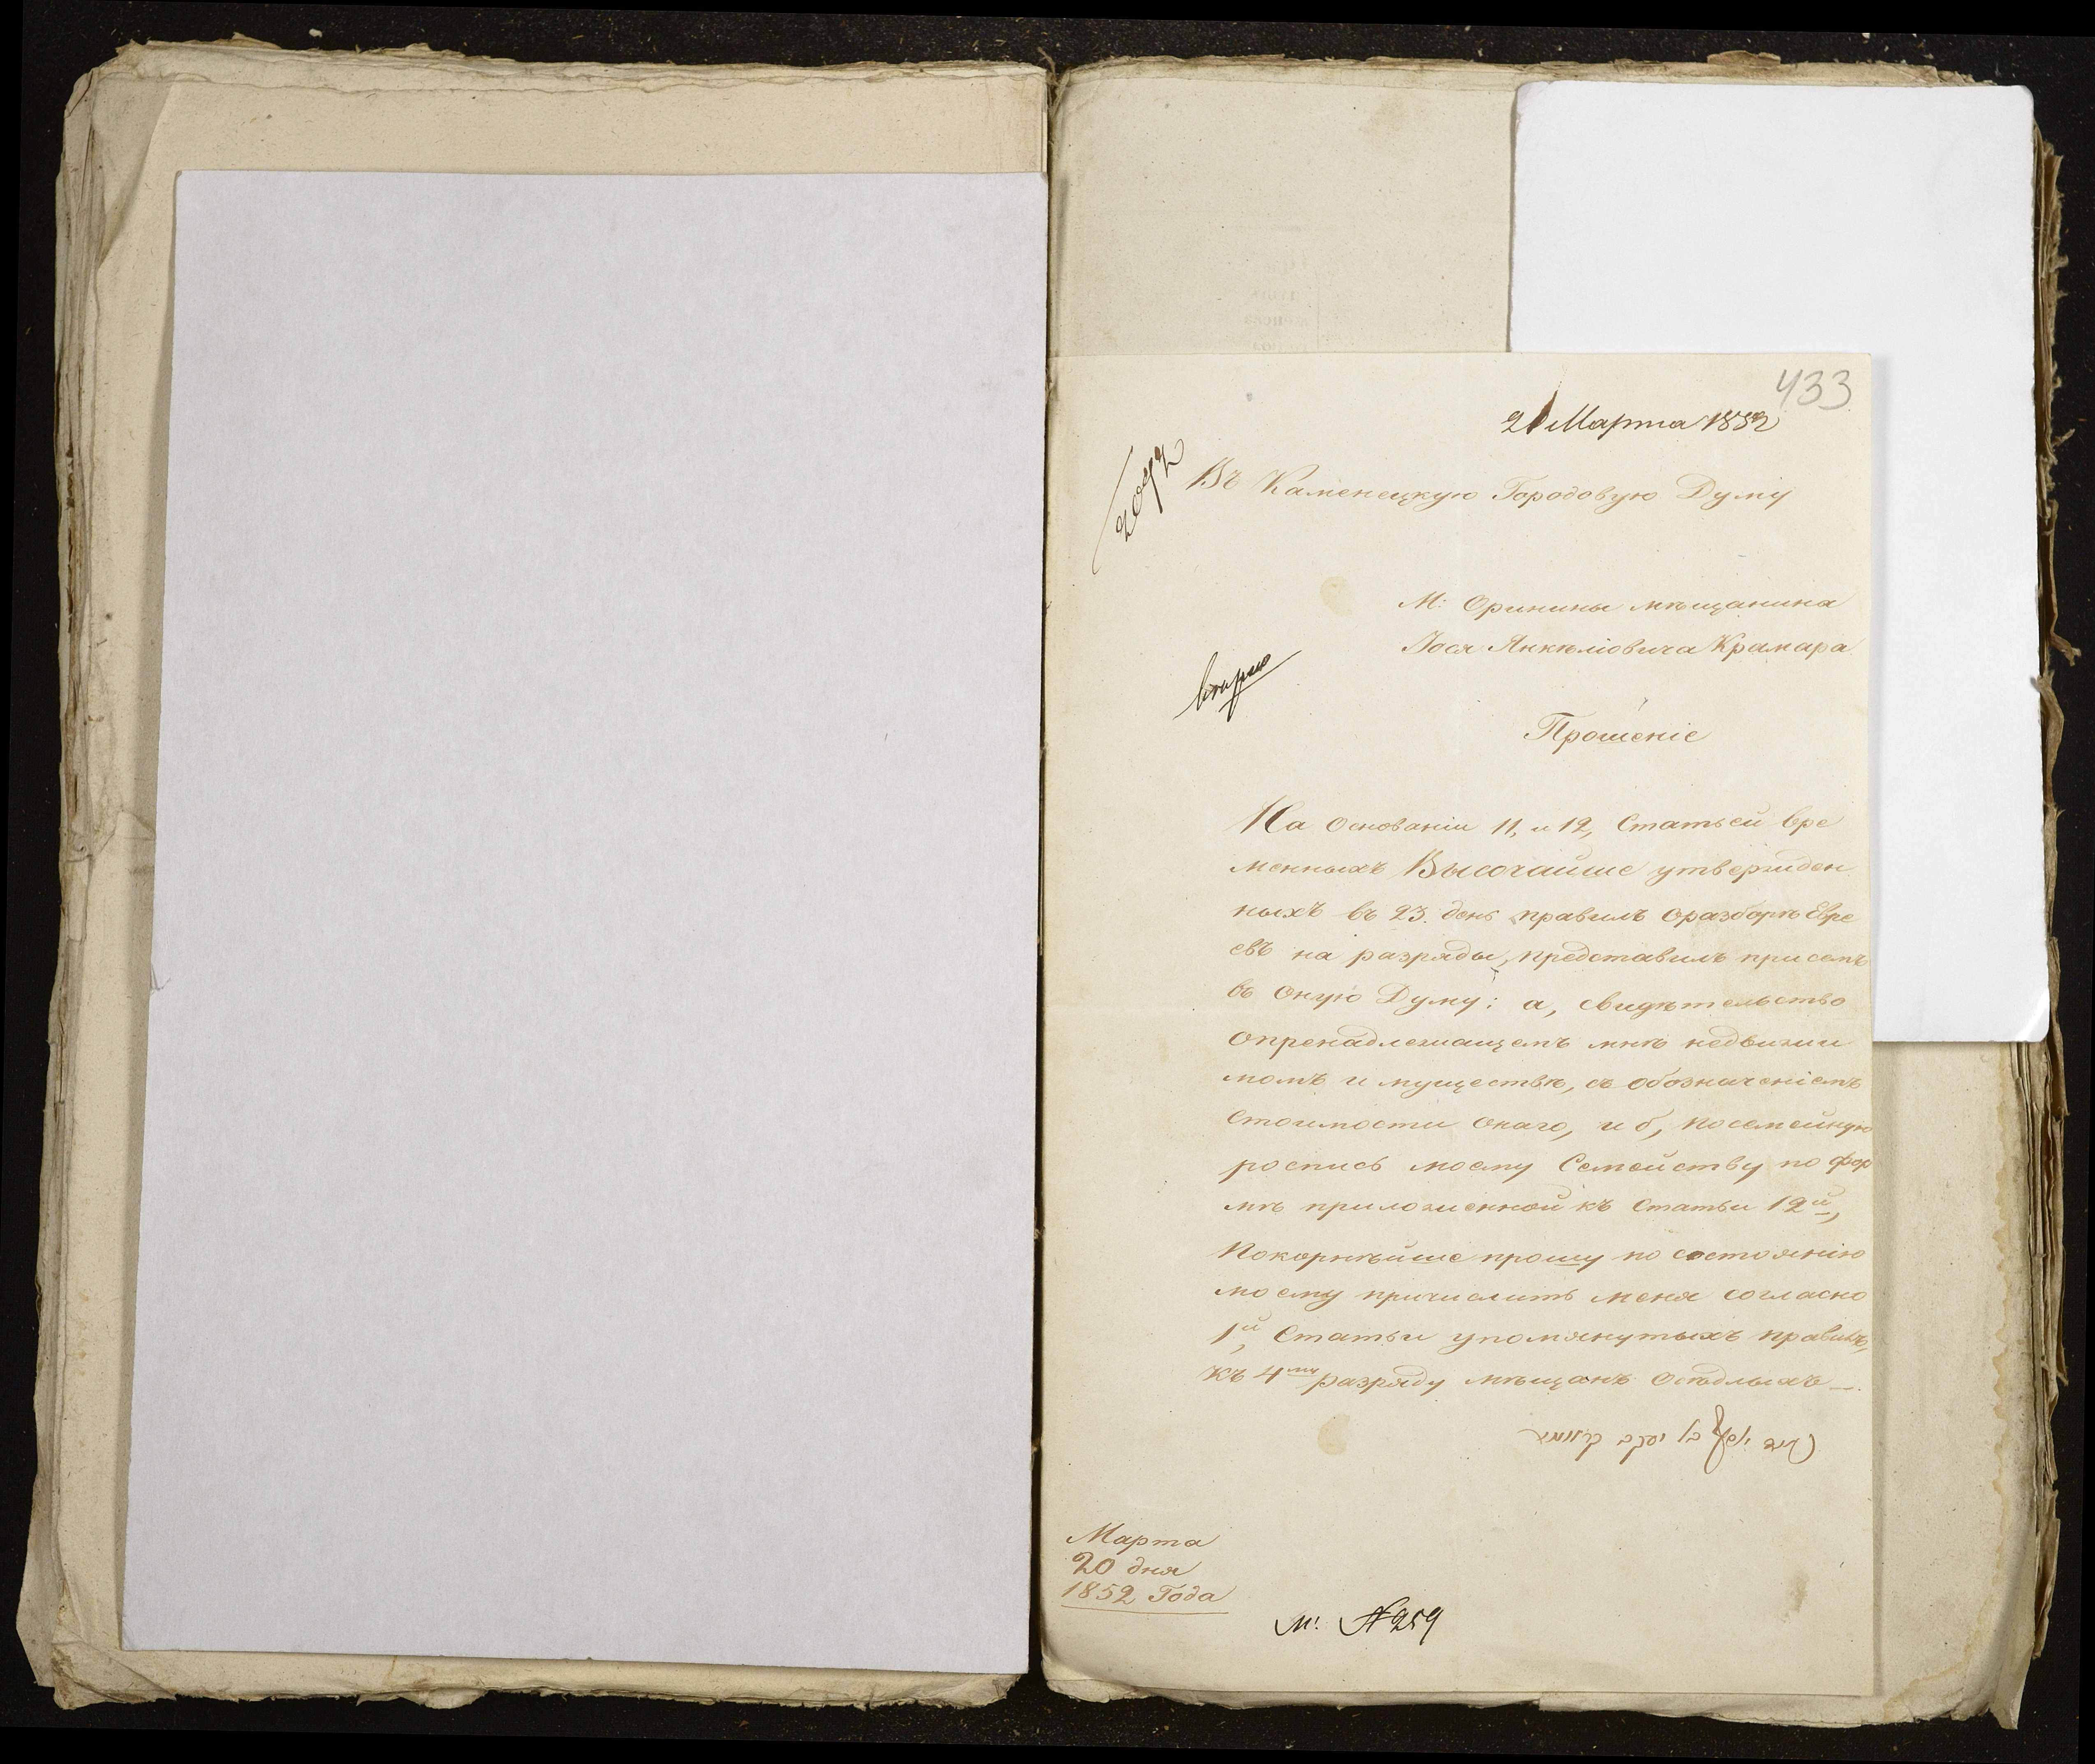 433
21 Марта 1852
Въ Каменецкую Городовую Думу
М: Оринины мѣщанина
Иося Янкѣлiовича Крамара
Прошеніе
На Основаніи 11, и 12, Статьей вре
менныхъ Высочайше утвержден
ныхъ въ 23. день правилъ о разборѣ Евре
евъ на разряды, представилъ при семъ
въ оную Думу: а, свидѣтельство
опренадлежащемъ мнѣ недвижи
момъ имуществѣ, съ обозначеніемъ
стоимости онаго, и б, посемейную
роспись моему Семейству по фор
мѣ приложенной къ Статьи 12й,
Покорнѣйше прошу по состоянію
моему причислить меня согласно
1й, Статьи упомянутыхъ правилъ,
къ 4му разряду мѣщанъ осѣдлыхъ —.
Марта
20 дня
1852 Года
М: №259